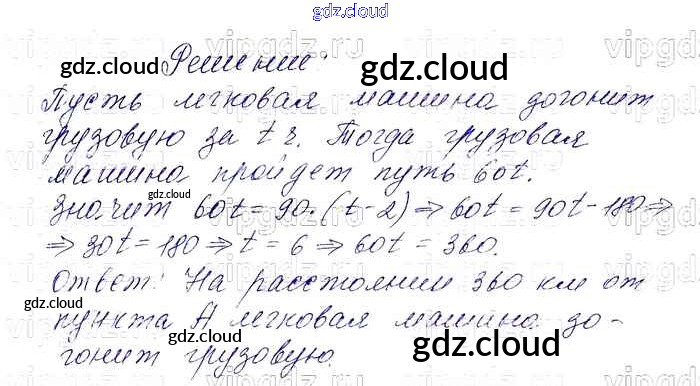 gdz.cloud
Решение:
Пусть легковая машина догонит
грузовую за t ч. Тогда грузовая
машина пройдет путь 60t.
Значит 60t = 90·(t-2) ⇒ 60t = 90t - 180 ⇒
⇒ 30t = 180 ⇒ t = 6 ⇒ 60t = 360.
Ответ: На расстоянии 360 км от
пункта А легковая машина до-
гонит грузовую.
gdz.cloud
gdz.cloud
gdz.cloud
gdz.cloud
gdz.cloud
gdz.cloud
gdz.cloud